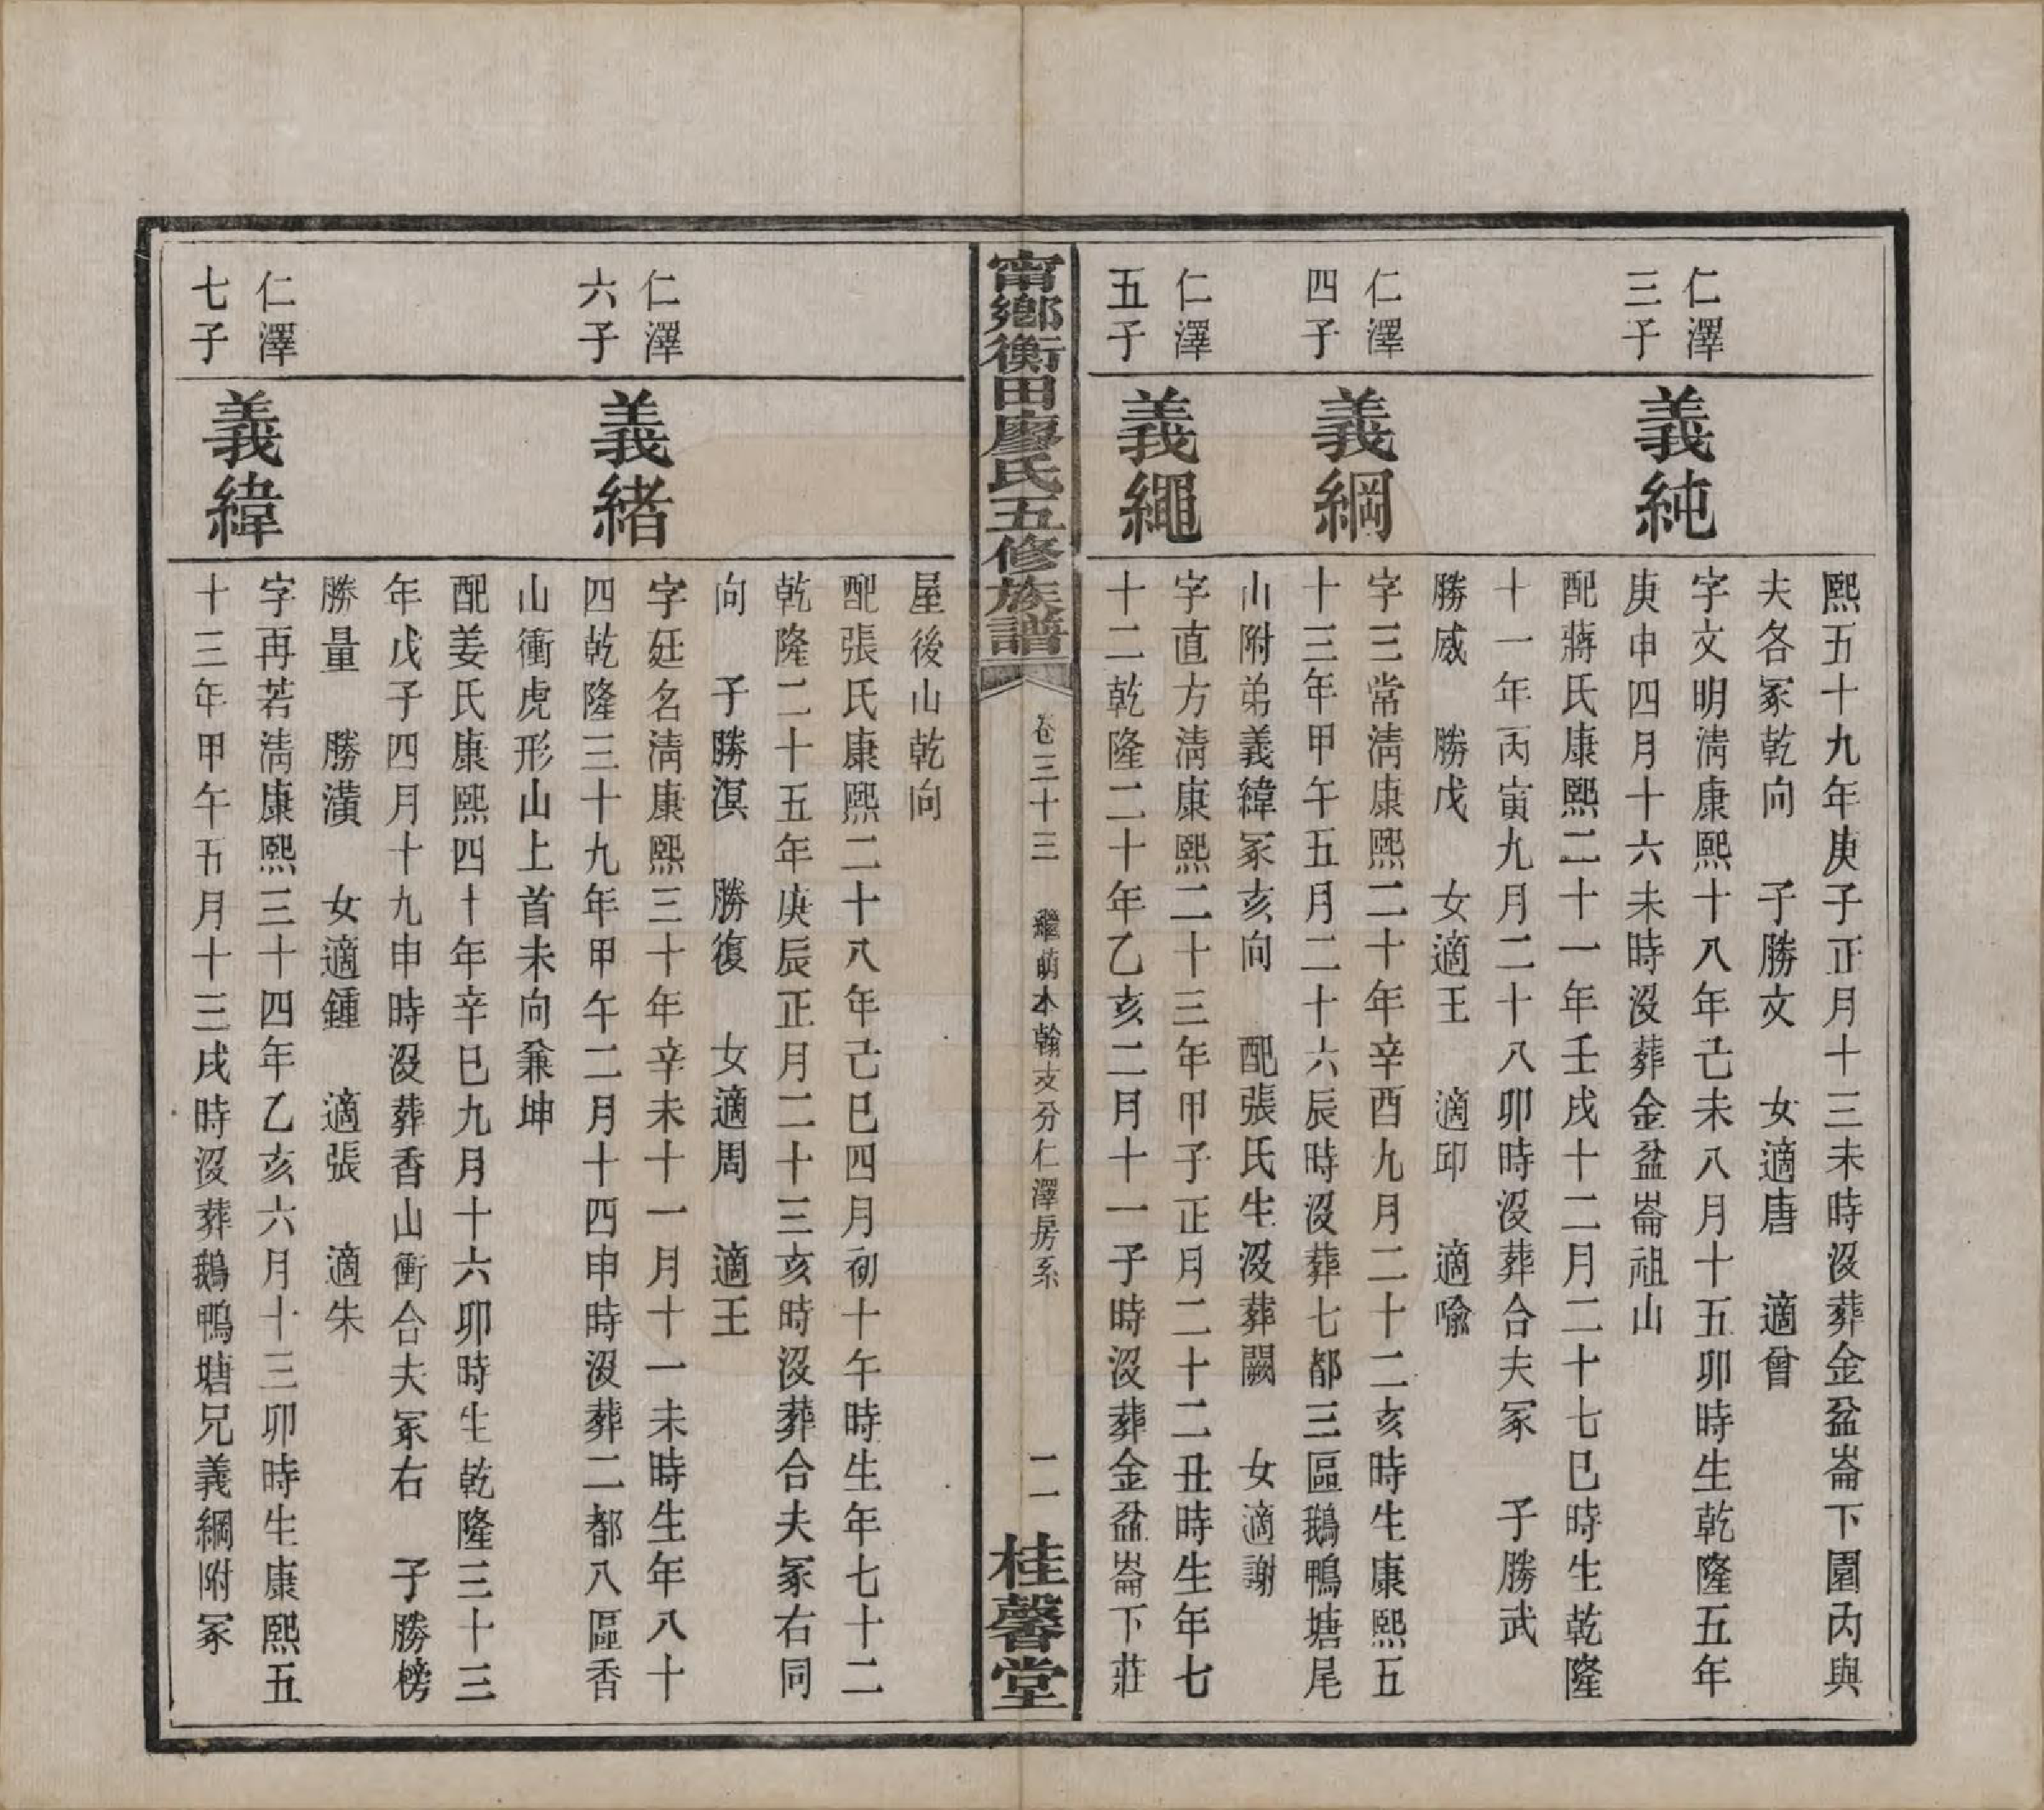 熙五十九年庚子正月十三未時沒葬金盆崙下園丙與
夫各冢乾向　子勝文　女適唐　適曾
仁澤
三子
義純
字文明淸康熙十八年己未八月十五卯時生乾隆五年
庚申四月十六未時沒葬金盆崙祖山
配蔣氏康熙二十一年壬戌十二月二十七巳時生乾隆
十一年丙寅九月二十八卯時沒葬合夫冢　子勝武
勝威　勝戊　女適王　適邱　適喩
仁澤
四子
義綱
字三常淸康熙二十年辛酉九月二十二亥時生康熙五
十三年甲午五月二十六辰時沒葬七都三區鵝鴨塘尾
山附弟義緯冢亥向　配張氏生沒葬闕　女適謝
仁澤
五子
義繩
字直方淸康熙二十三年甲子正月二十二丑時生年七
十二乾隆二十年乙亥二月十一子時沒葬金盆崙下莊
甯鄉衡田廖氏五修族譜
卷三十三　繼萌本翰支分仁澤房系　二一
桂馨堂
屋後山乾向
配張氏康熙二十八年己巳四月初十午時生年七十二
乾隆二十五年庚辰正月二十三亥時沒葬合夫冢右同
向　子勝淏　勝復　女適周　適王
仁澤
六子
義緖
字廷名淸康熙三十年辛未十一月十一未時生年八十
四乾隆三十九年甲午二月十四申時沒葬二都八區香
山衝虎形山上首未向兼坤
配姜氏康熙四十年辛巳九月十六卯時生乾隆三十三
年戊子四月十九申時沒葬香山衝合夫冢右　子勝榜
勝量　勝潢　女適鍾　適張　適朱
仁澤
七子
義緯
字再若淸康熙三十四年乙亥六月十三卯時生康熙五
十三年甲午五月十三戌時沒葬鵝鴨塘兄義綱附冢